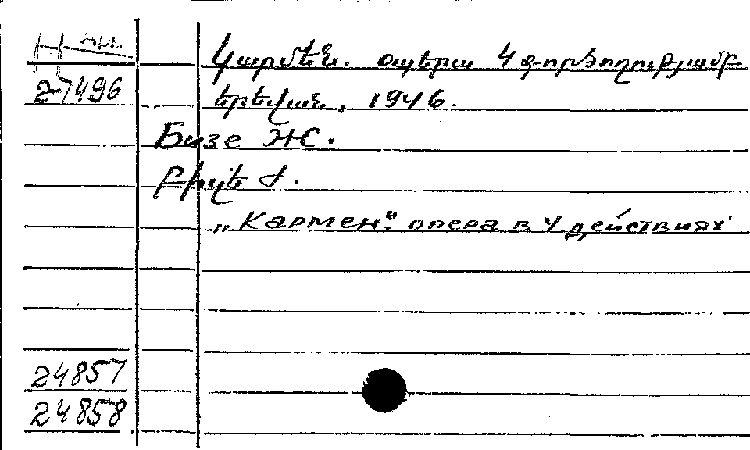 Կարմեն. օպերա 4 գործողությամբ
27496
Երևան, 1946.
Бизе Ж.
Բիզե Ժ.
„Кармен". опера в 4 действиях
24857
24858